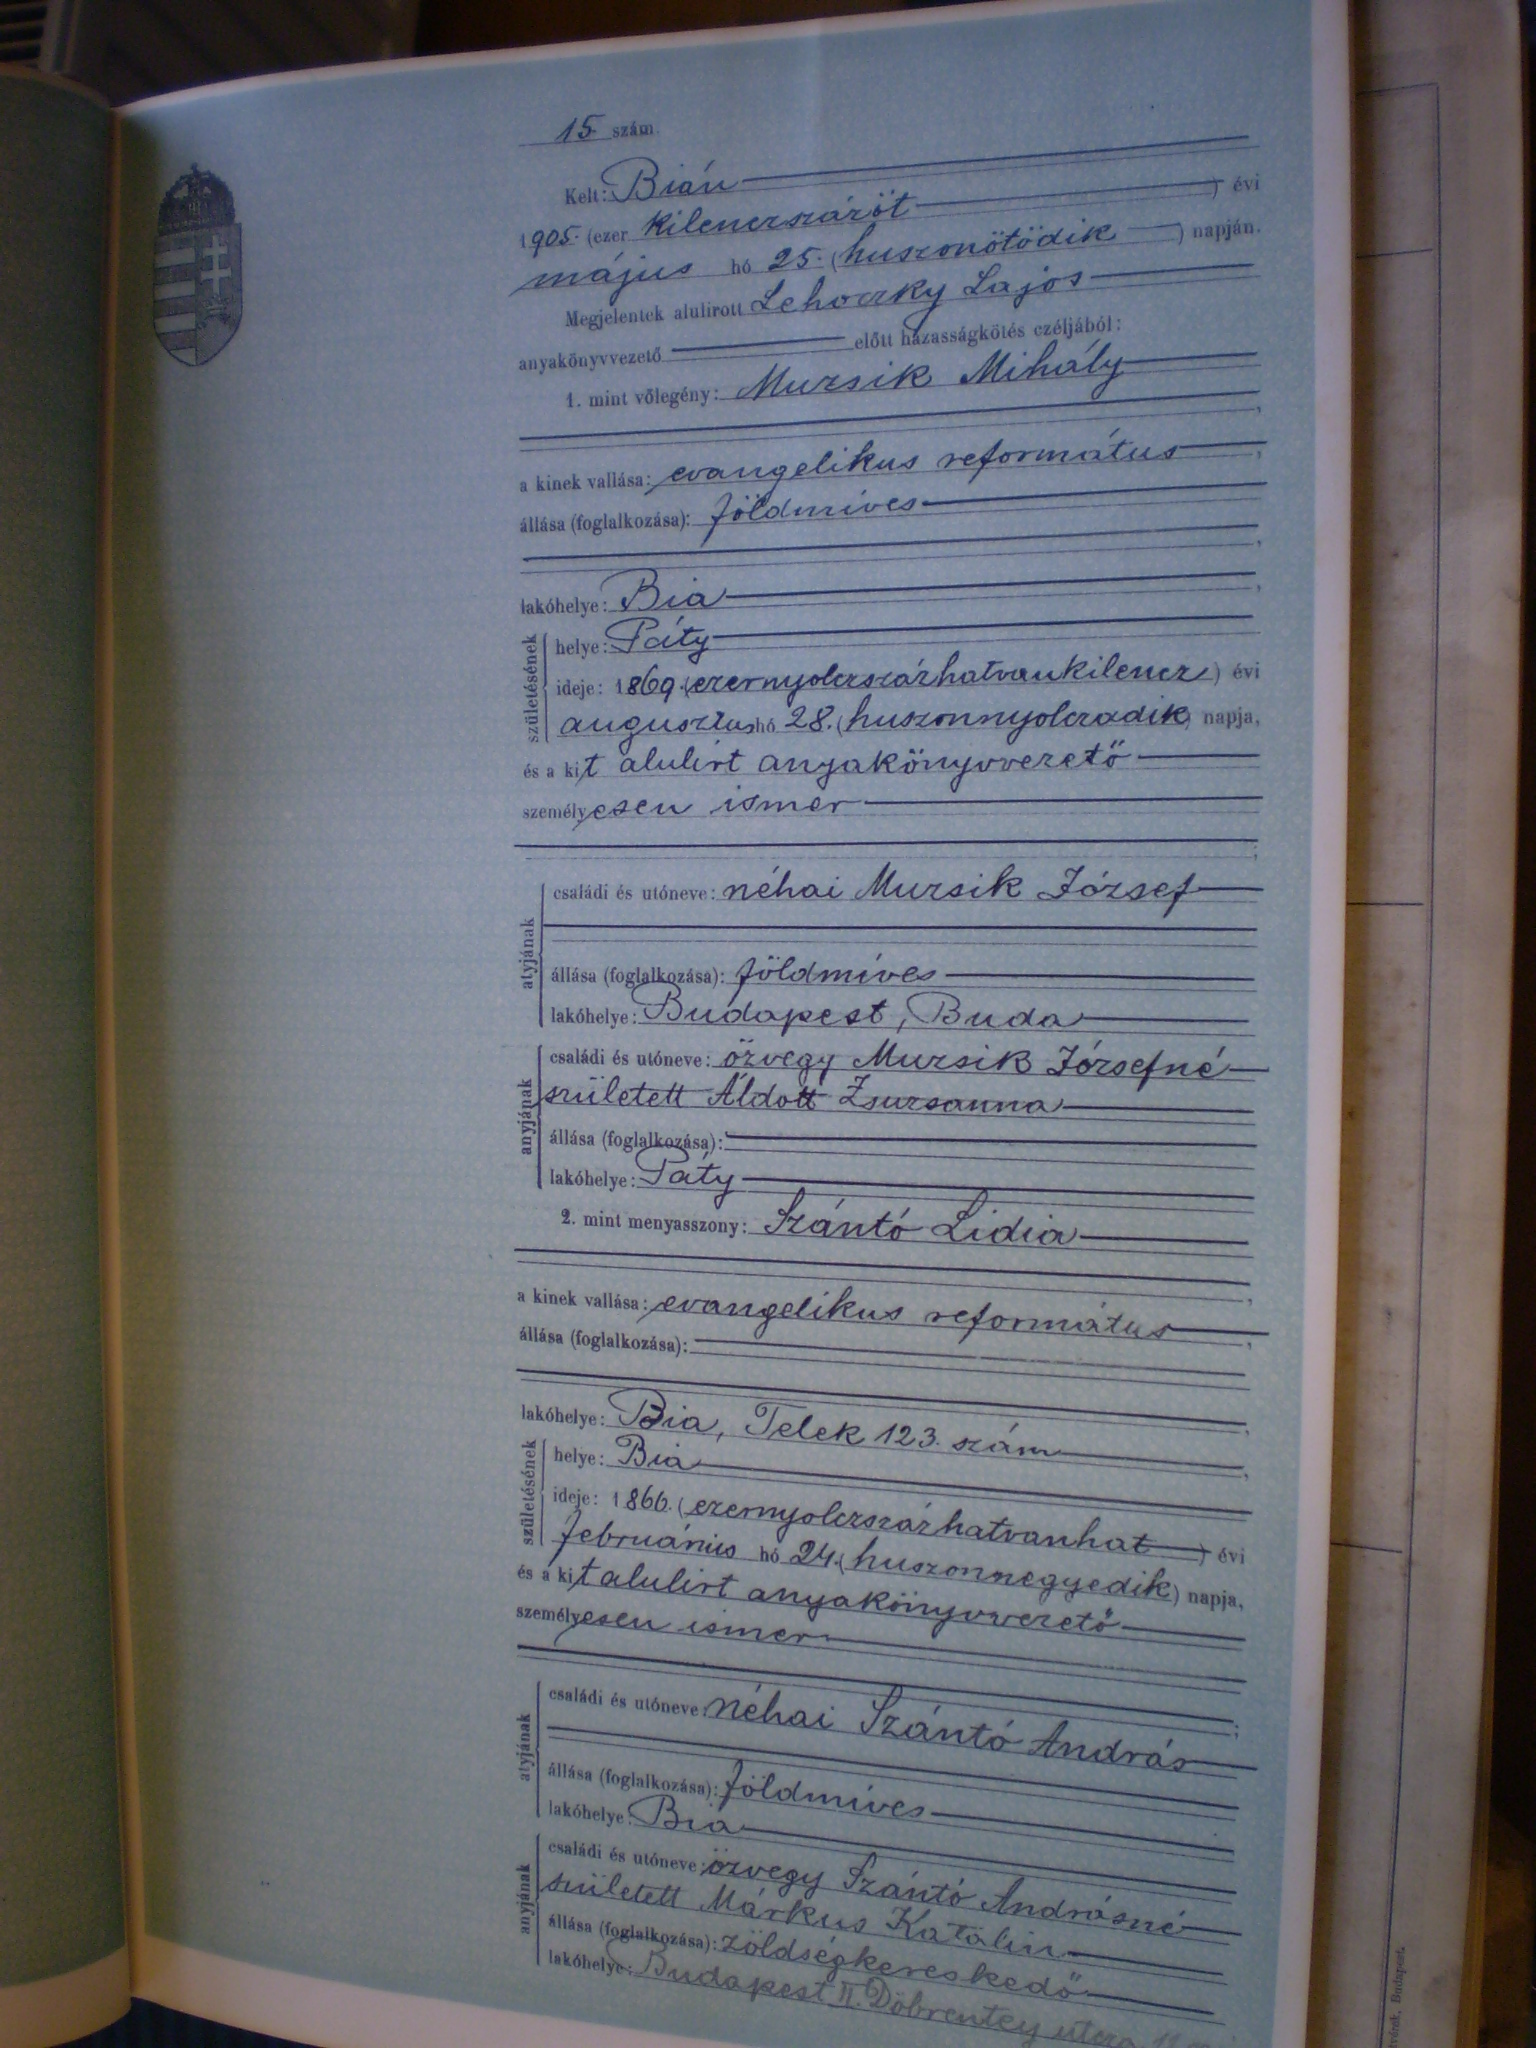 15. szám.
Kelt: Bián
1905. (ezer kilenczszázöt) évi
május hó 25. (huszonötödik) napján.
Megjelentek alulirott Lehoczky Lajos
anyakönyvvezető előtt házasságkötés czéljából:
1. mint vőlegény: Muzsik Mihály
a kinek vallása: evangelikus református
állása (foglalkozása): földmíves
lakóhelye: Bia
születésének
helye: Páty
ideje: 1869. (ezernyolczszázhatvankilencz) évi
augusztus hó 28. (huszonnyolczadik) napja,
és a kit alulirt anyakönyvvezető
személyesen ismer
atyjának
családi és utóneve: néhai Muzsik József
állása (foglalkozása): földmíves
lakóhelye: Budapest, Buda
anyjának
családi és utóneve: özvegy Muzsik Józsefné
született Áldott Zsuzsanna
állása (foglalkozása):
lakóhelye: Páty
2. mint menyasszony: Szántó Lidia
a kinek vallása: evangelikus református
állása (foglalkozása):
lakóhelye: Bia, Telek 123. szám
születésének
helye: Bia
ideje: 1866. (ezernyolczszázhatvanhat) évi
februárius hó 24. (huszonnegyedik) napja,
és a kit alulirt anyakönyvvezető
személyesen ismer
atyjának
családi és utóneve: néhai Szántó András
állása (foglalkozása): földmíves
lakóhelye: Bia
anyjának
családi és utóneve: özvegy Szántó Andrásné
született Márkus Katalin
állása (foglalkozása): zöldségkereskedő
lakóhelye: Budapest II. Döbrentey utcza 11
Budapest.